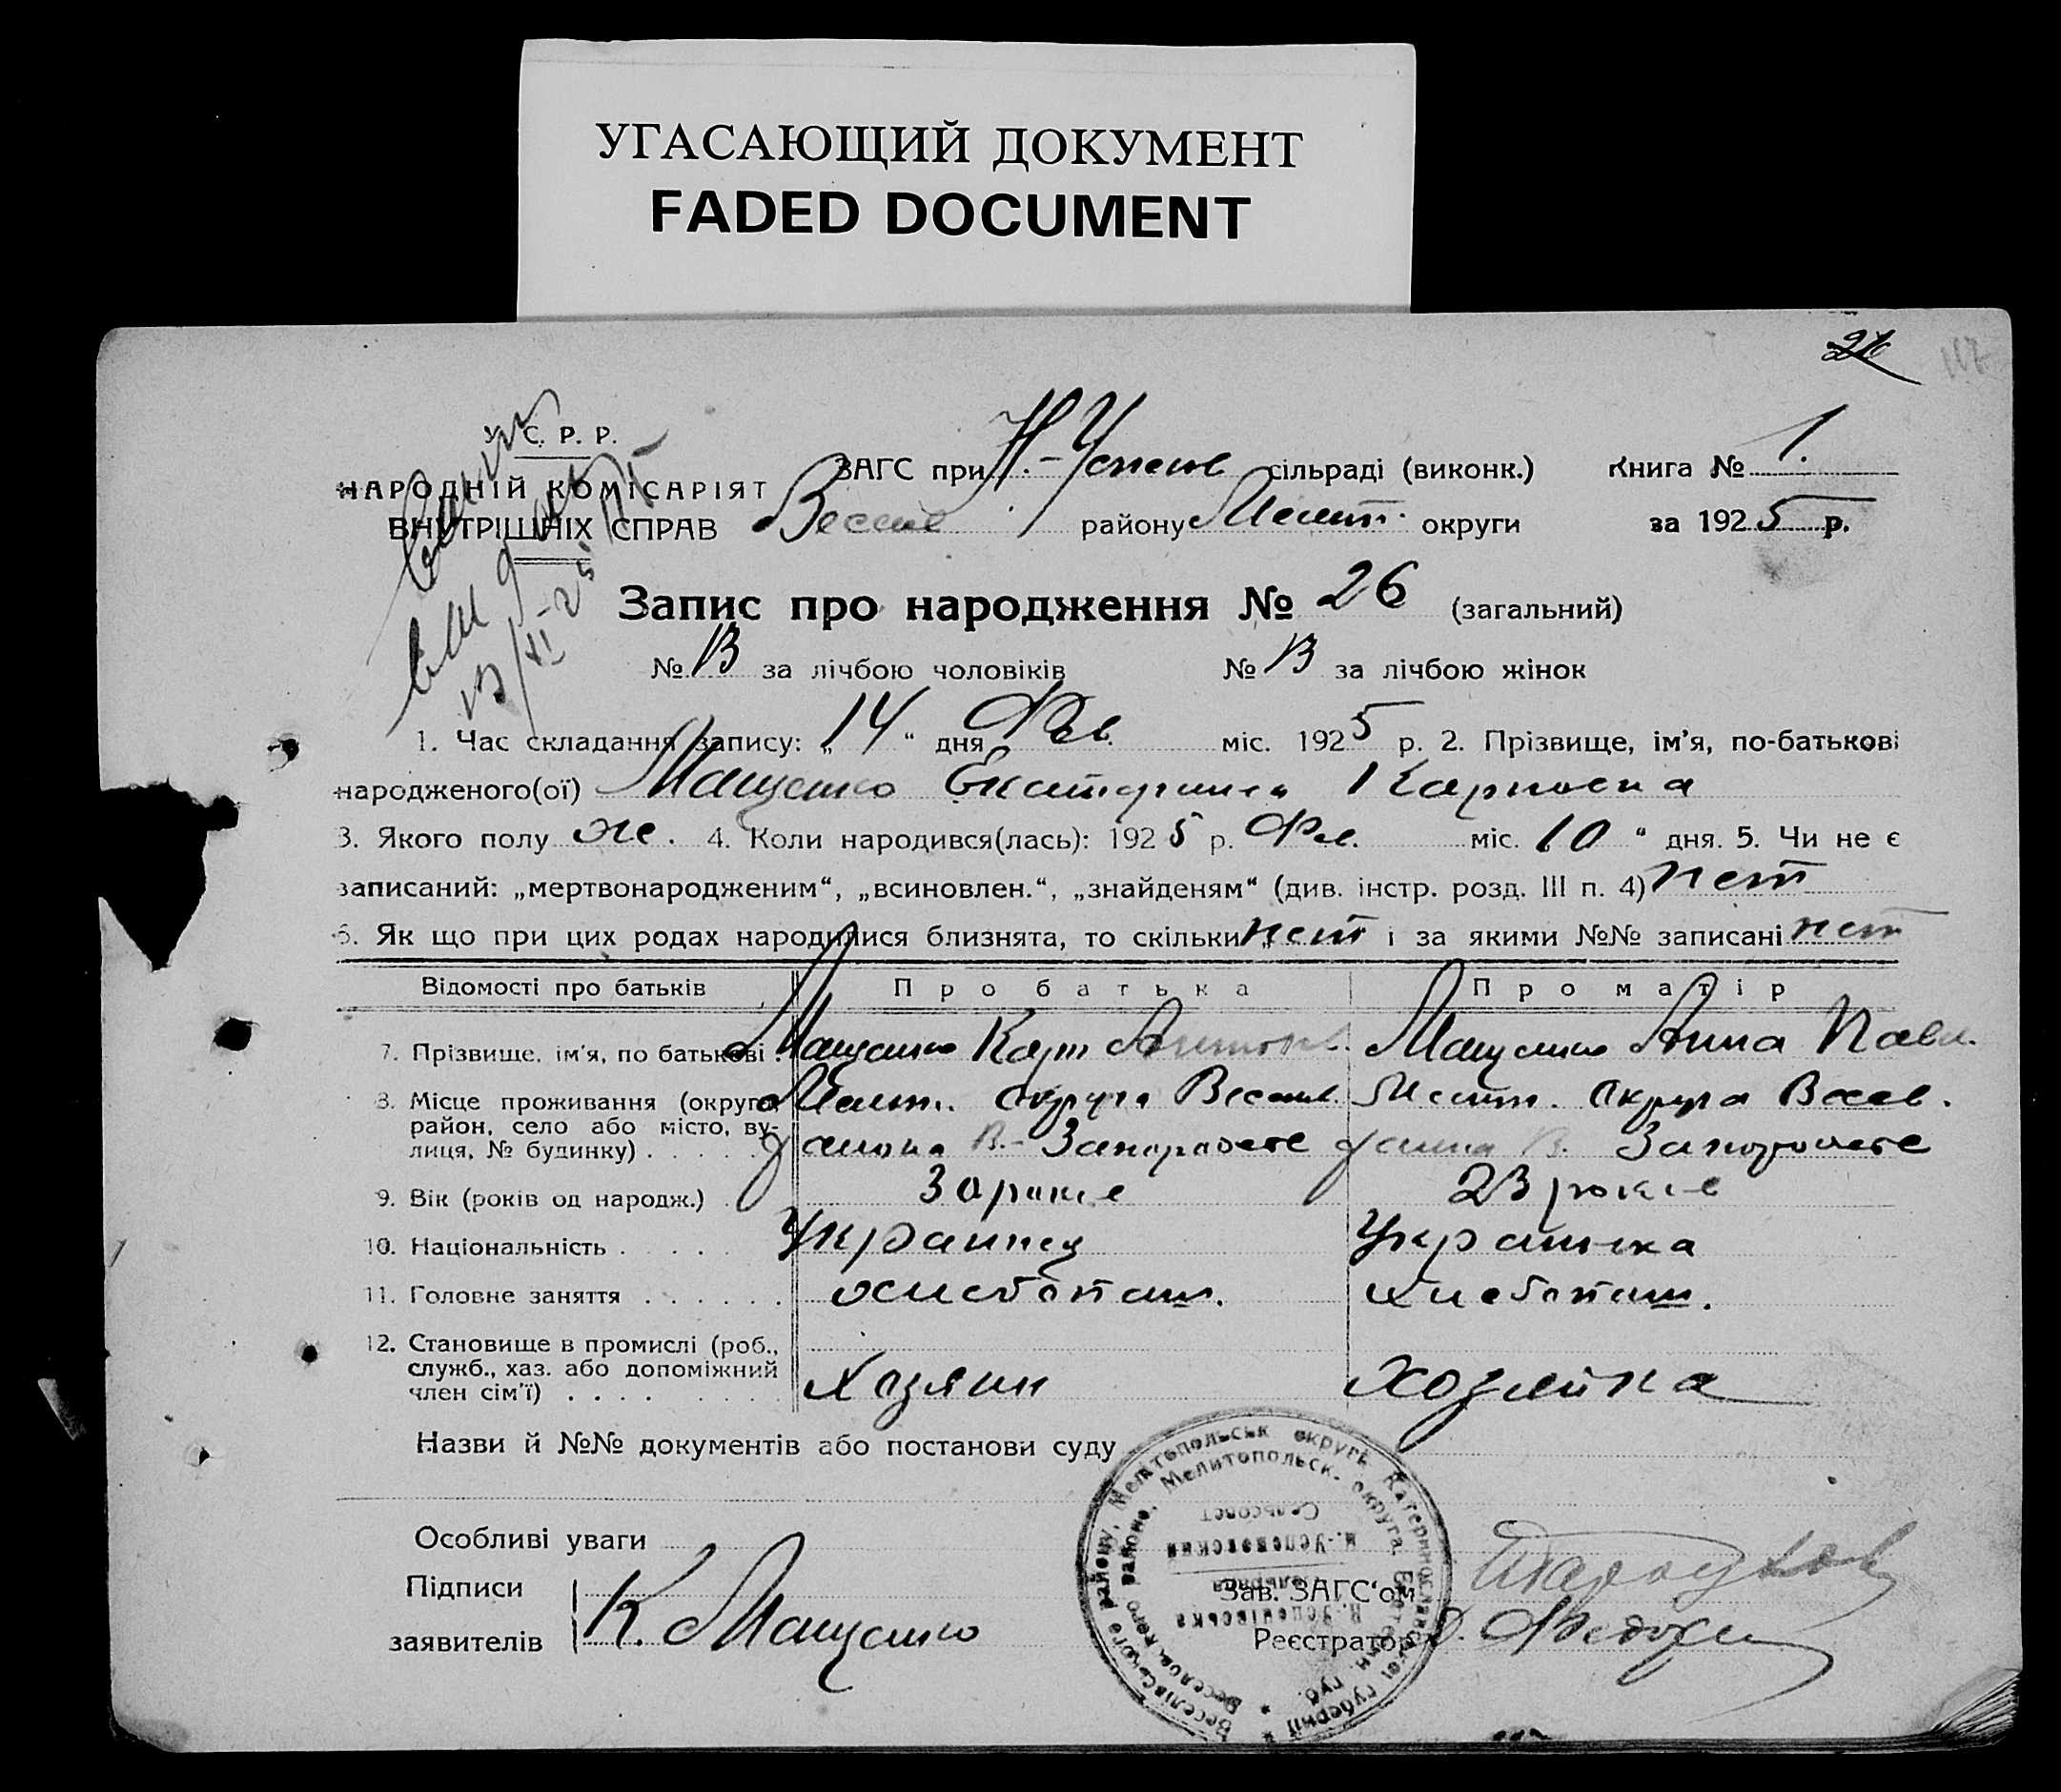 УГАСАЮЩИЙ ДОКУМЕНТ
FADED DOCUMENT
26
У. С. Р. Р.
НАРОДНІЙ КОМІСАРІЯТ
ВНУТРІШНІХ СПРАВ
ЗАГС при Н.-Успенів сільраді (виконк.) Книга № 1.
Весел районy Мелит. округи за 1925 р.
Запис про народження № 26 (загальний)
№ 13 за лічбою чоловіків № 13 за лічбою жінок
1. Час складання запису: „14“ дня Фев. міс. 1925 р. 2. Прізвище, ім'я, по-батькові
народженого(ої) Мащенко Екатерина Карповна
3. Якого полу же. 4. Коли народився(лась): 1925 р. Фев. міс. „10“ дня. 5. Чи не є
записаний: „мертвонародженим“, „всиновлен.“, „знайденям“ (див. інстр. розд. III п. 4) нет
6. Як що при цих родах народилися близнята, то скільки нет і за якими №№ записані нет
Відомості про батьків Про батька Про матір
7. Прізвище, ім'я, по батькові Мащенко Карп Антонов. Мащенко Анна Павл.
8. Місце проживання (округа, Мелит. округа Весел. Мелит. округа Весел.
район, село або місто, ву-
лиця, № будинку) В.- Запорожье В. Запорожье
9. Вік (років од народж.) 30 років 23 років
10. Національність Украинец Украинка
11. Головне заняття хлебопаш. хлебопаш.
12. Становище в промислі (роб.,
служб., хаз. або допоміжний
член сім'ї) Хозяин хозяйка
Назви й №№ документів або постанови суду
Особливі уваги
Підписи
заявителів К. Мащенко
Зав. ЗАГС'ом
Реєстратор
Веселівського району, Мелітопольськ округи Катеринославської губернії
Веселовского района, Мелитопольск. округа Екатерин. губ.
Н.-Успенівська
сельрада
Н.-Успеновский
Сельсовет